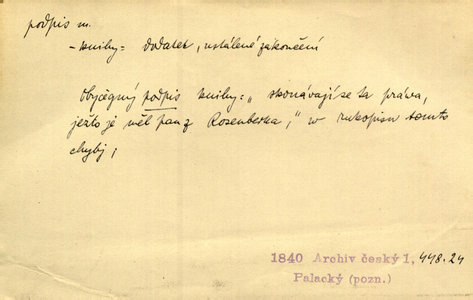 podpis m.
- knihy = dodatek, ustálené zakončení
obyčegný podpis knihy: „skonávají se ta práva,
ježto je měl pan z Rosenberka," w rukopisu tomto
chybj;
1840 Archiv český 1, 448.24
Palacký (pozn.)